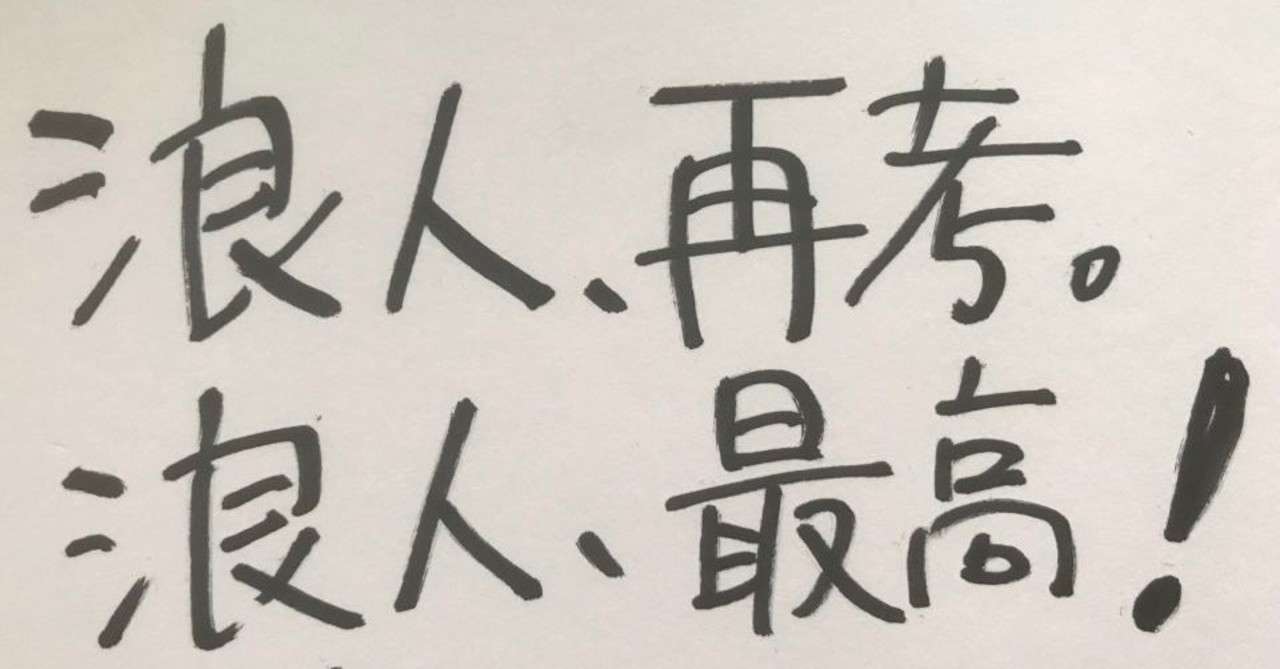 浪人、再考。
浪人、最高!